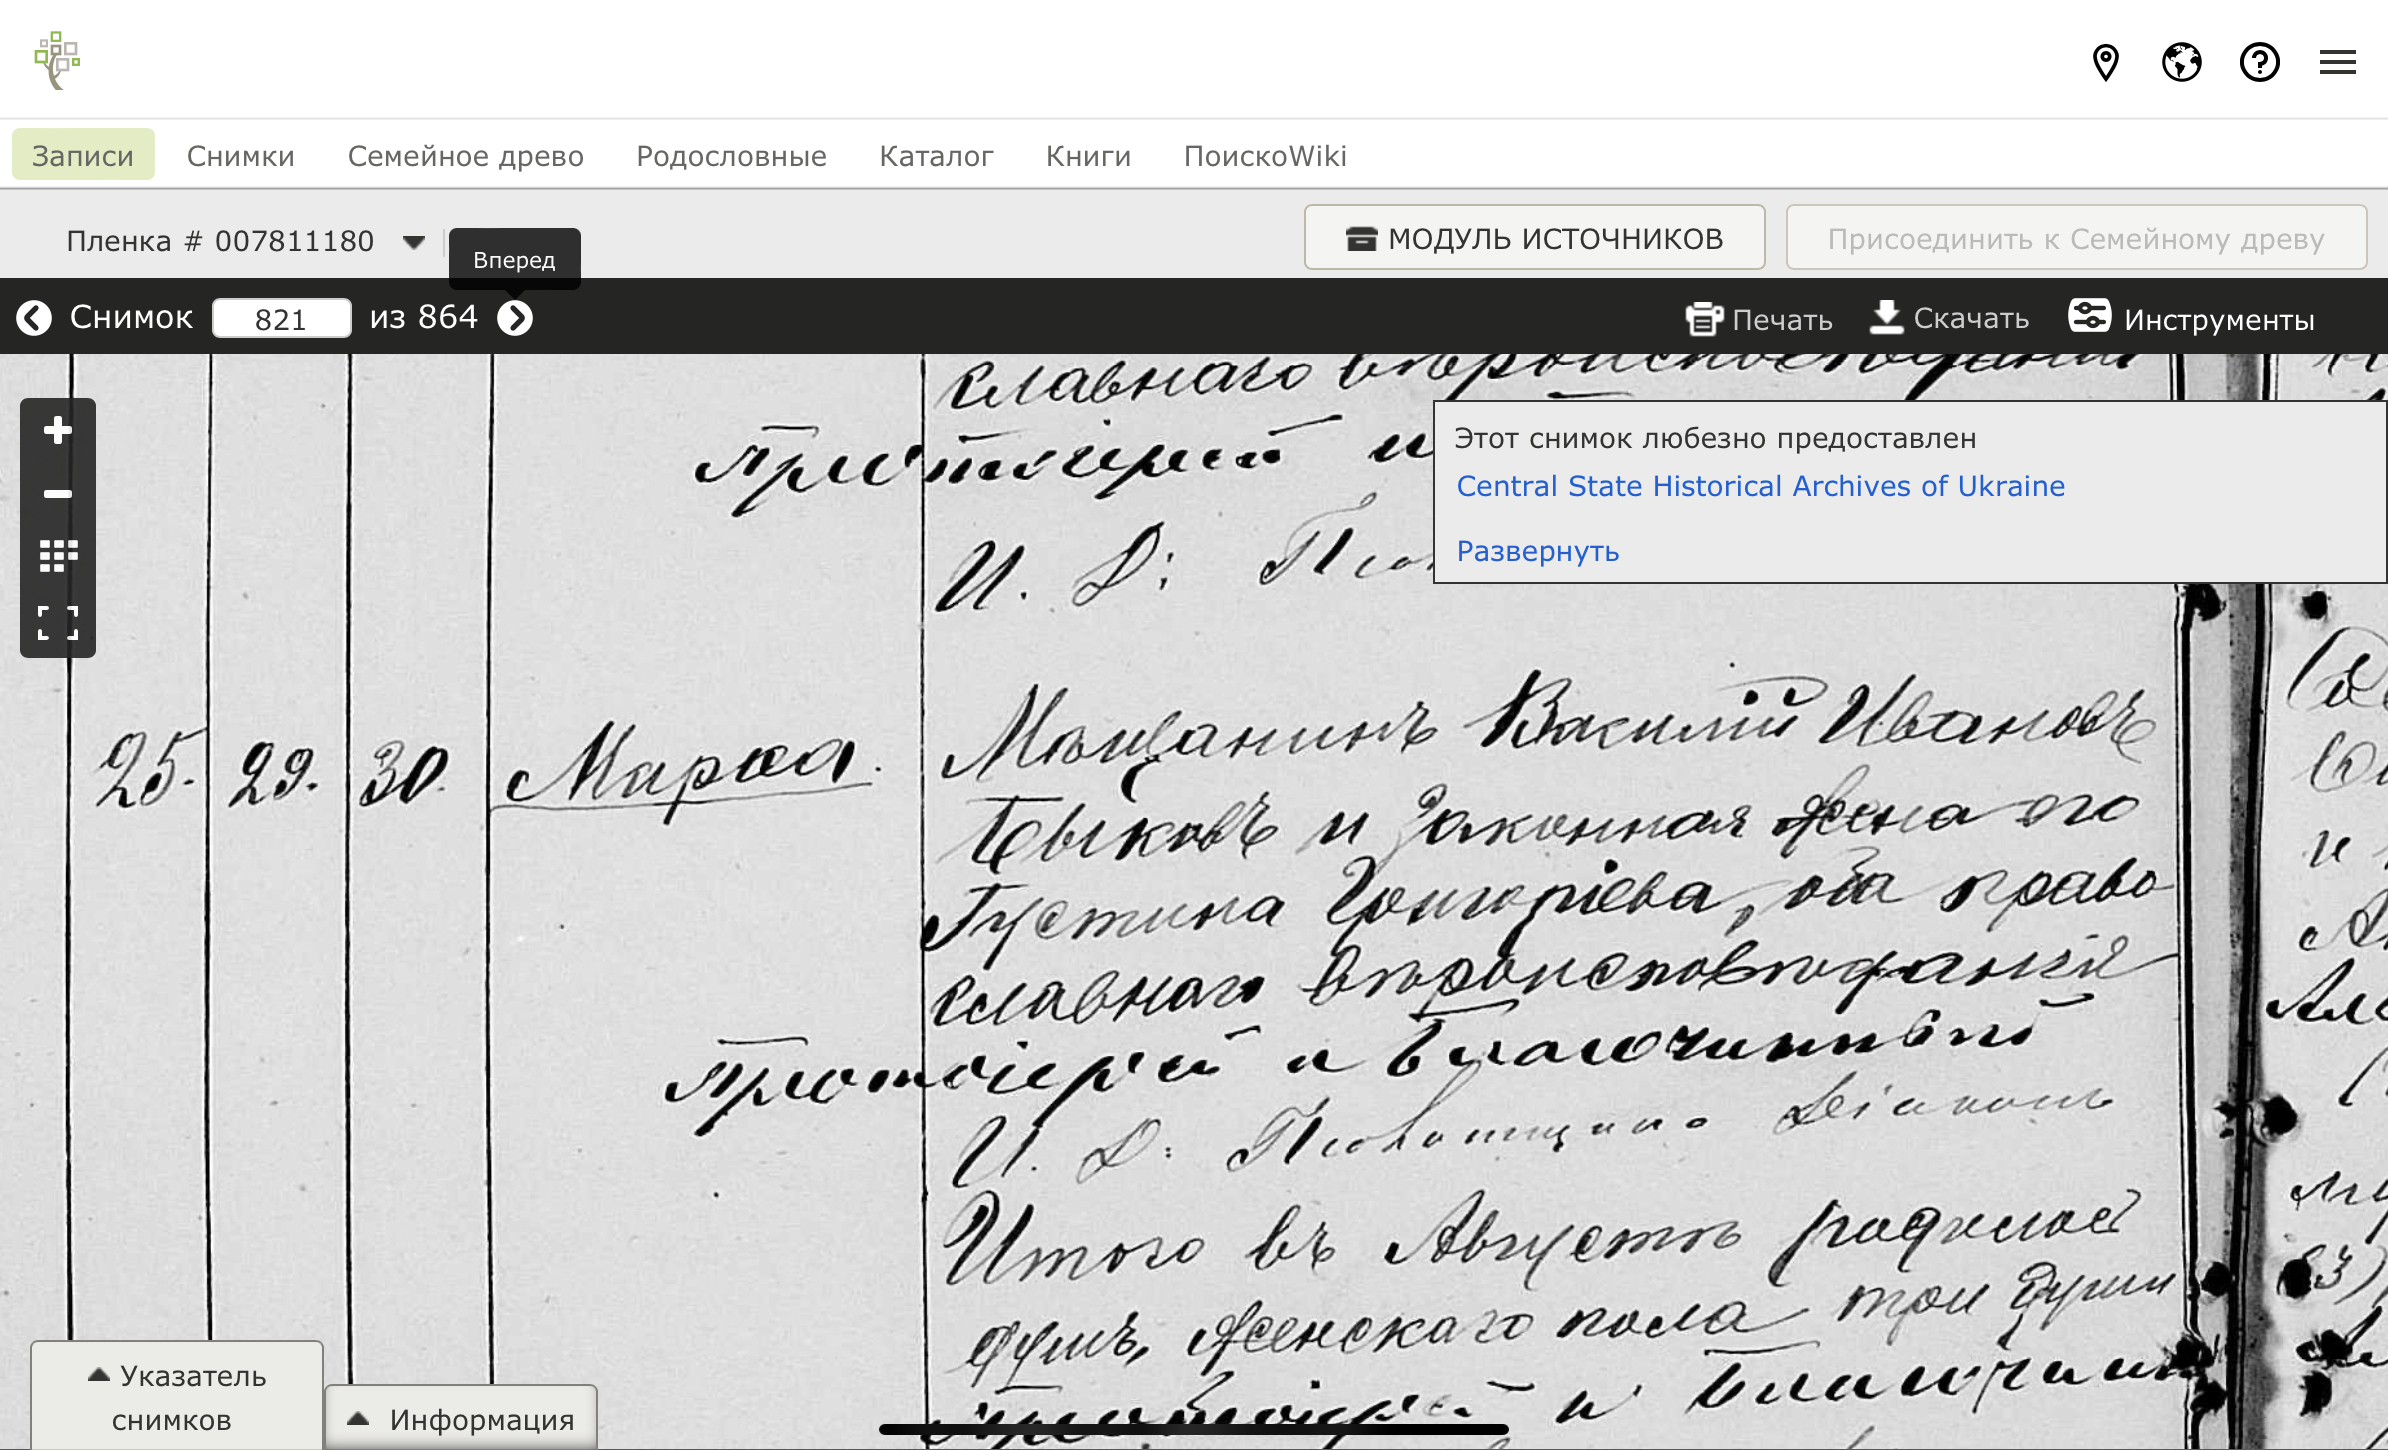 Записи Снимки Семейное древо Родословные Каталог Книги ПоискоWiki
Пленка # 007811180
Вперед
МОДУЛЬ ИСТОЧНИКОВ
Присоединить к Семейному древу
Снимок 821 из 864
Печать Скачать Инструменты
славнаго вѣроисповѣданія
Протоіерей и
И. Д:
Этот снимок любезно предоставлен
Central State Historical Archives of Ukraine
Развернуть
25. 29. 30. Марѳа. Мѣщанинъ Василій Ивановъ
Быковъ и законная жена его
Густина Григоріева, оба право
славнаго вѣроисповѣданія
Протоіерей и Благочинный
И. Д: Псаломщика Діаконъ
Итого въ Августѣ родилось
душъ, женскаго пола три души
Протоіерей и Благочин
Указатель снимков
Информация